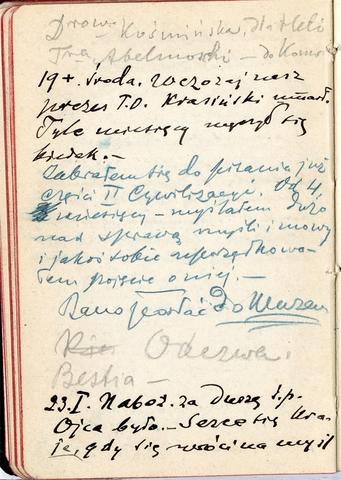 Kośmińska, dla
Abelmowski — do Kom
19+. Środa. Wczoraj nasz
prezes T.O. Krasiński umarł.
Tyle miesięcy męczył się
biedak.—
Zabrałem się do pisania już
części II Cywilizacyi. Od 4
miesięcy — myślałem dużo
nad sprawą myśli i mowy
i jakoś sobie uporządkowa-
łem pojęcie o niej.—
Rano posłać do Muzeu
Odezwa.
Bestia —
23.I. Naboż. za Duszę ś.p.
Ojca było.— Serce się kra-
je, gdy się wróci na myśl